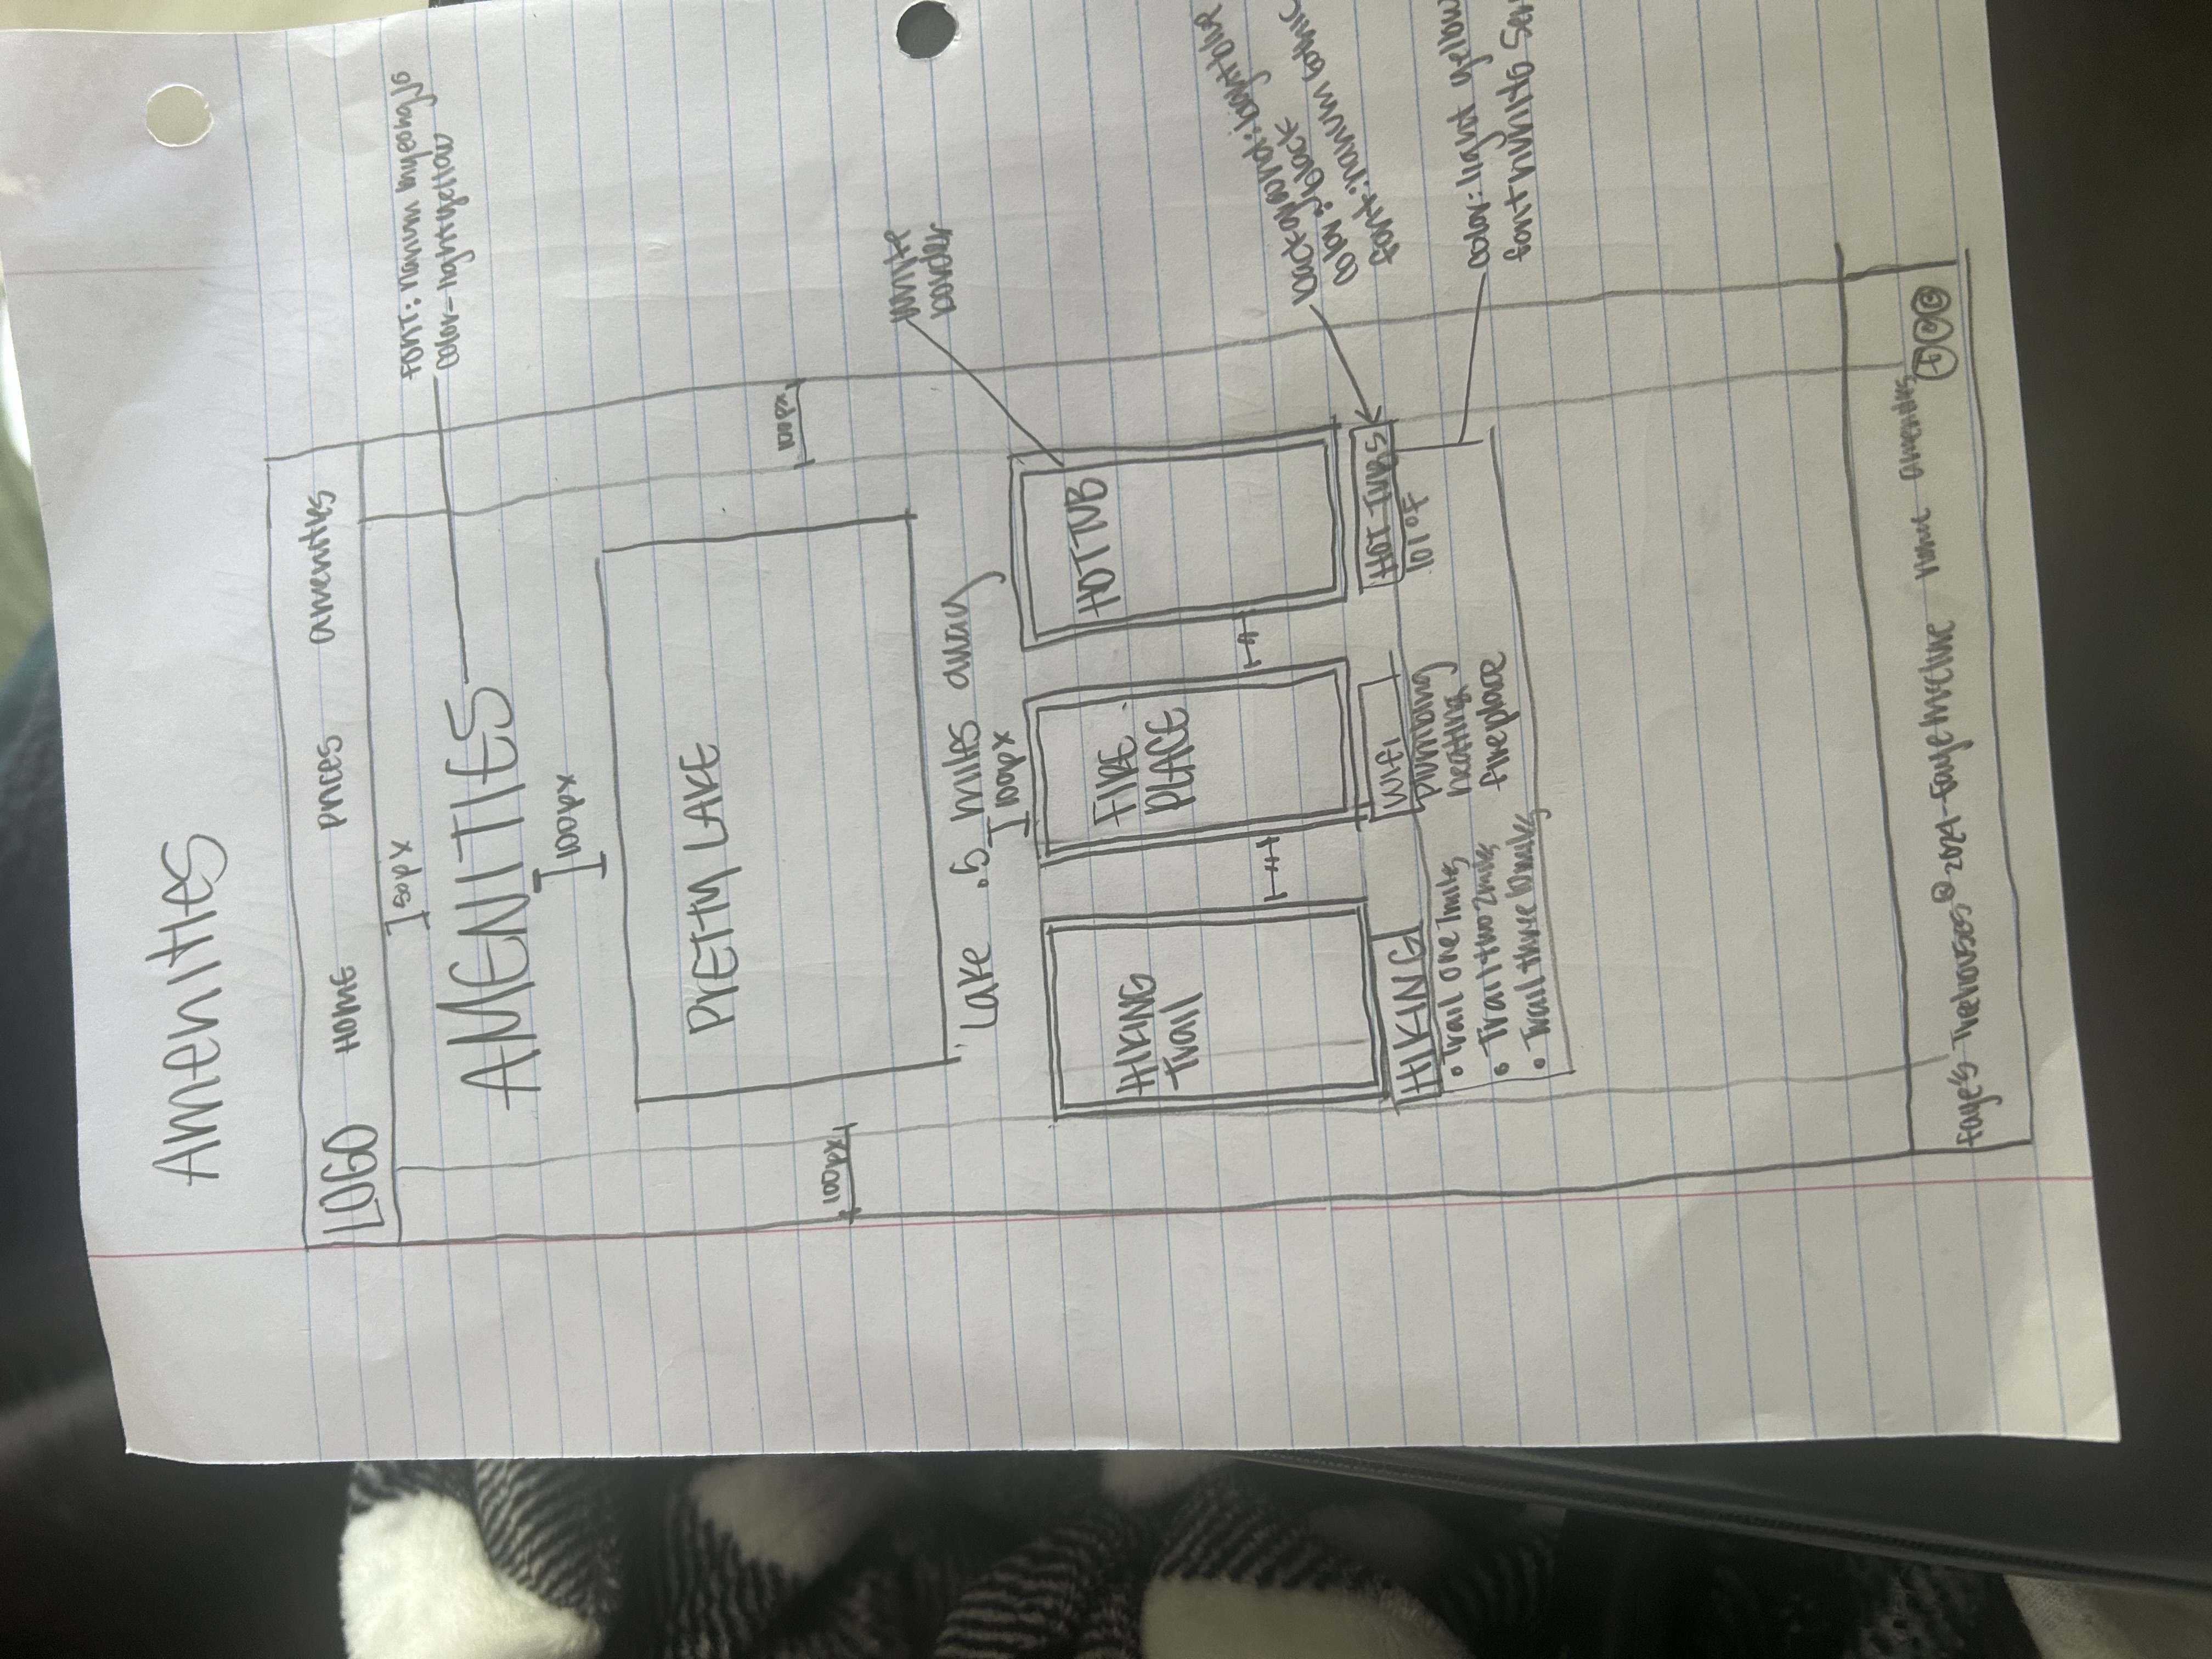 Amenities
LOGO HOME Prices amenities
50px
font: nanum myeongjo
color - lightyellow
AMENITIES
100px
PRETTY LAKE
100px
100px
white
border
Lake .5 miles away
100px
HIKING
Trail
FIRE
PLACE
HOT TUB
background: lightblue
color: black
font: nanum Gothic
HIKING
• Trail one 1miles
• Trail two 2miles
• Trail three 10miles
Wifi
plumbing
heating
fireplace
HOT TUBS
101°F
color: light yellow
font nunito Ser
Faye's Treehouses © 2024 - Faye McClure home amenities